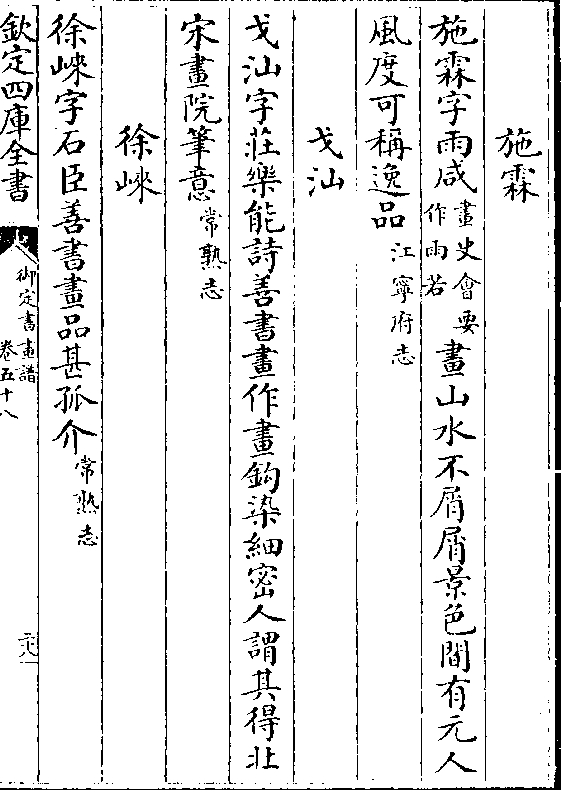 施霖
施霖字雨咸畫史會要作雨若畫山水不屑屑景色間有元人
風度可稱逸品江寧府志
戈汕
戈汕字莊樂能詩善書畫作畫鉤染細密人謂其得北
宋畫院筆意常熟志
徐崍
徐崍字石臣善書畫品甚孤介常熟志
欽定四庫全書
御定書畫譜
卷五十八